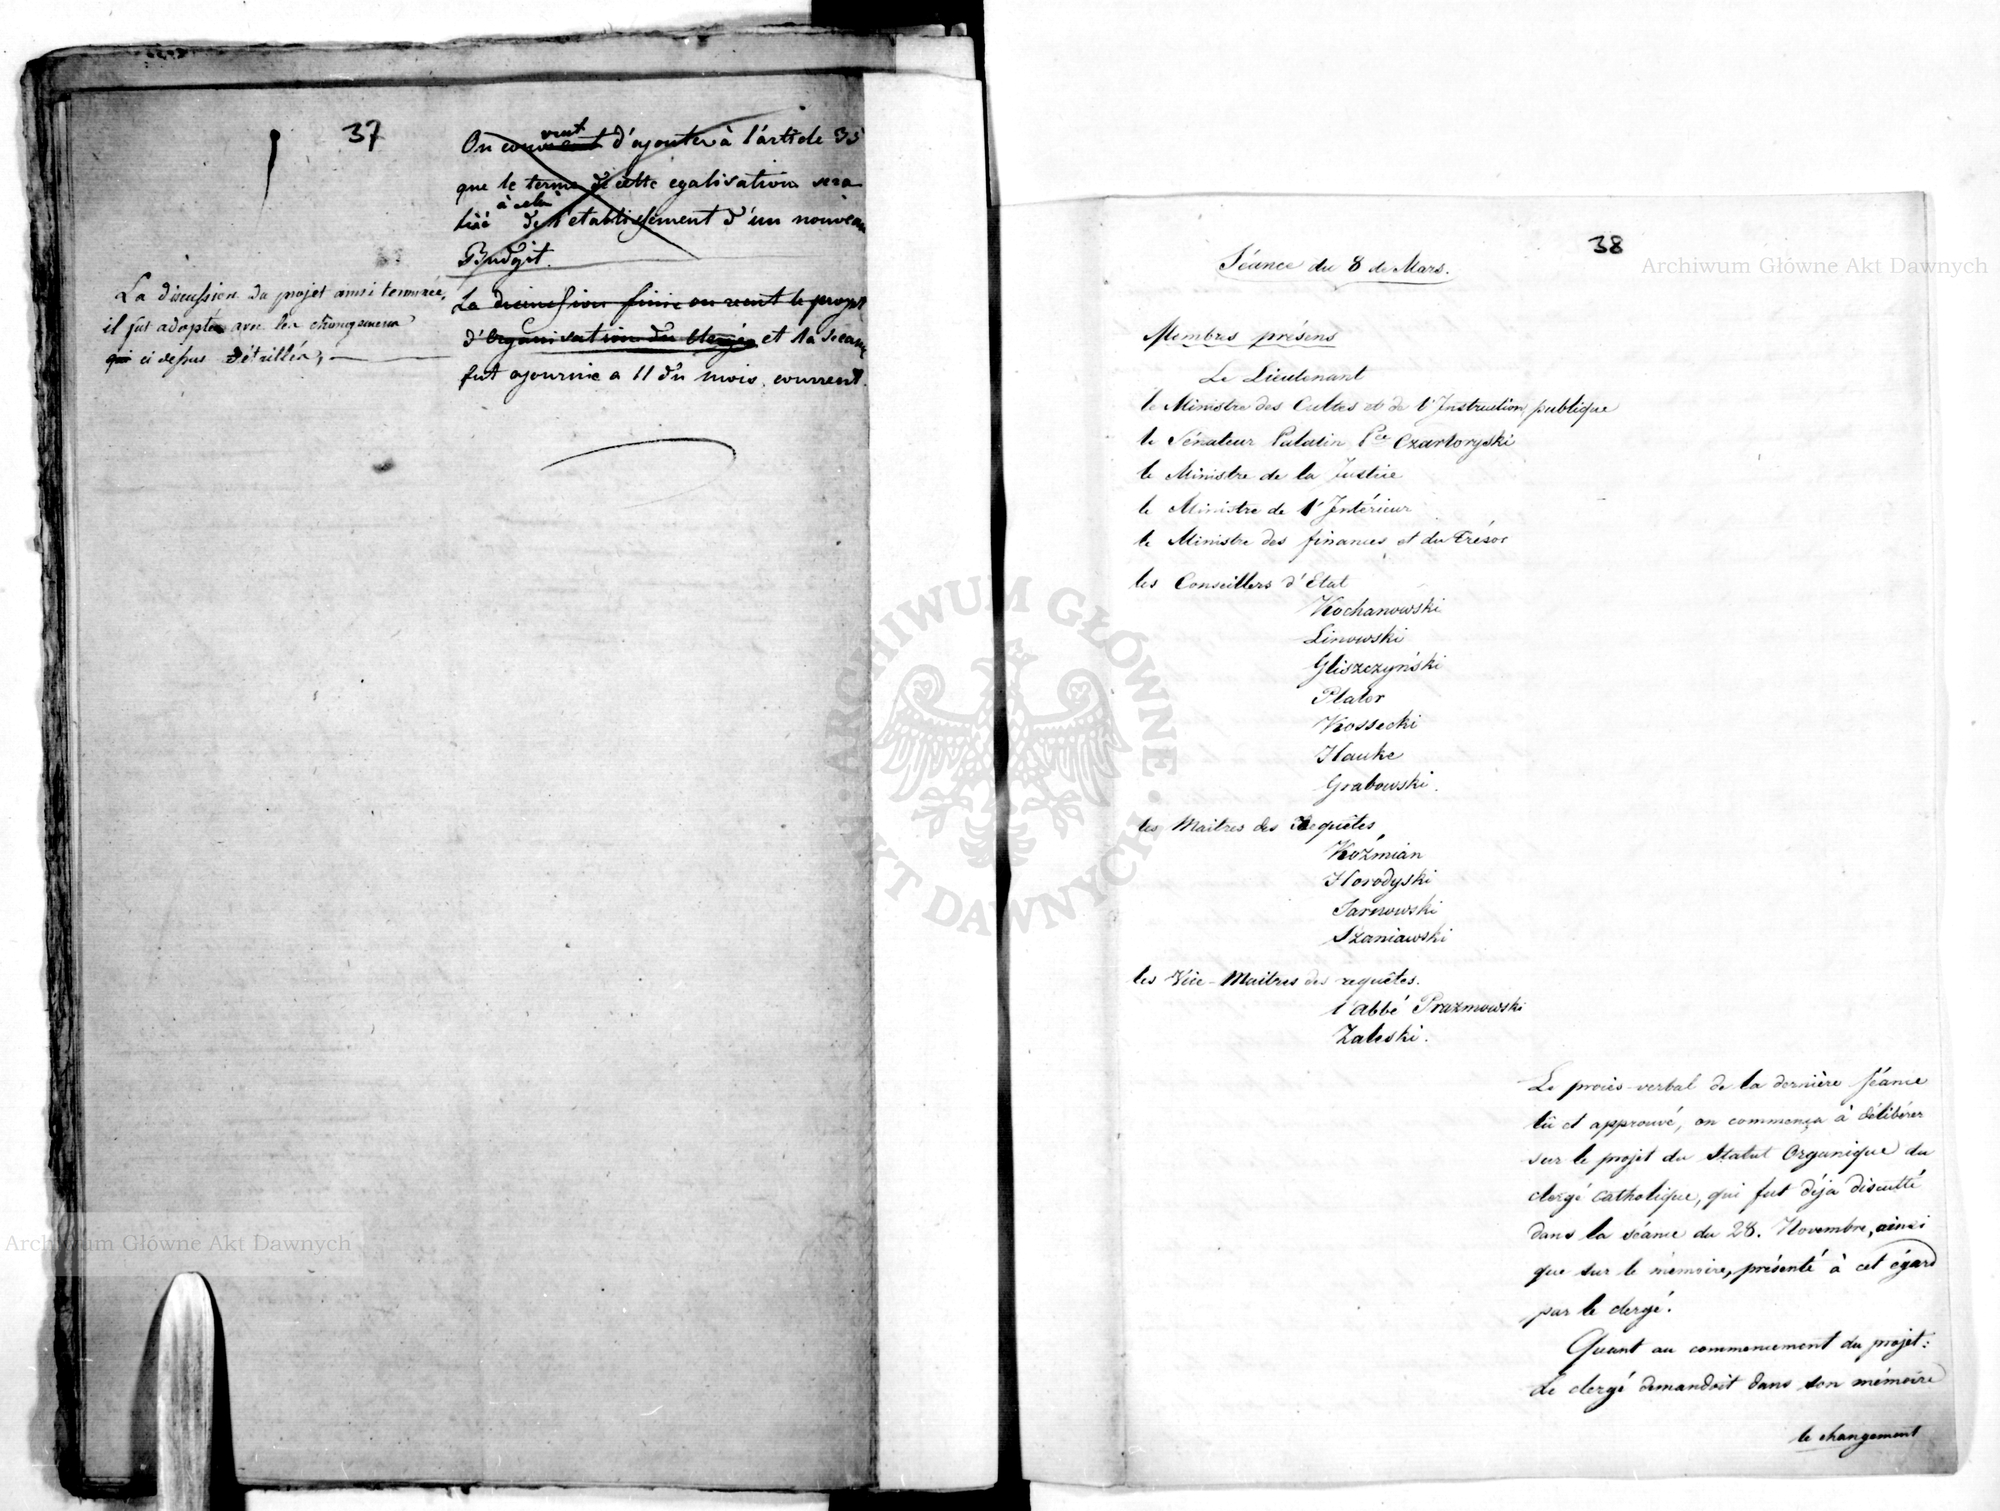 37
On convent veut d'ajouter à l'article 35
que le terme de cette egalisation sera
lié à celui de l'etablissement d'un nouveau
Budget.
La discussion du projet ainsi terminée,
il fut adopté avec les changemens
qui ci dessus détaillés,
La discussion finie on veut le projet
d'organisation du Clergé et la séance
fut ajournie a 11 du mois courrent.
38
Séance du 8 de Mars.
Membres présens
Le Lieutenant
le Ministre des Cultes et de l'Instruction publique
le Sénateur Palatin Pce Czartoryski
le Ministre de la Justice
le Ministre de l'Intérieur
le Ministre des finances et du Trésor
les Conseillers d'Etat
Kochanowski
Linowski
Gliszczyński
Plater
Kossecki
Hauke
Grabowski.
les Maîtres des Requêtes
Koźmian
Horodyski
Tarnowski
Szaniawski
les Vice-Maitres des requêtes.
l'abbé Prazmowski
Zaleski.
Le procès-verbal de la dernière séance
lû et approuvé, on commença à délibérer
sur le projet du Statut Organique du
clergé catholique, qui fut déja discutté
dans la séance du 28. Novembre, ainsi
que sur le mémoire, présenté à cet égard
par le clergé.
Quant au commencement du projet:
Le clergé demandoit dans son mémoire
le changement
Archiwum Główne Akt Dawnych
Archiwum Główne Akt Dawnych
ARCHIWUM GŁÓWNE AKT DAWNYCH